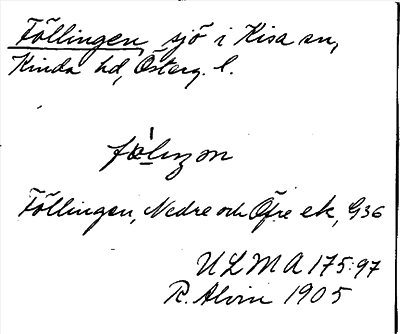 Föllingen, sjö i Kisa sn,
Kinda hd, Österg. l.
Föllingen, Nedre och Öfre ek, G36
ULMA 175:97
R. Alvin 1905